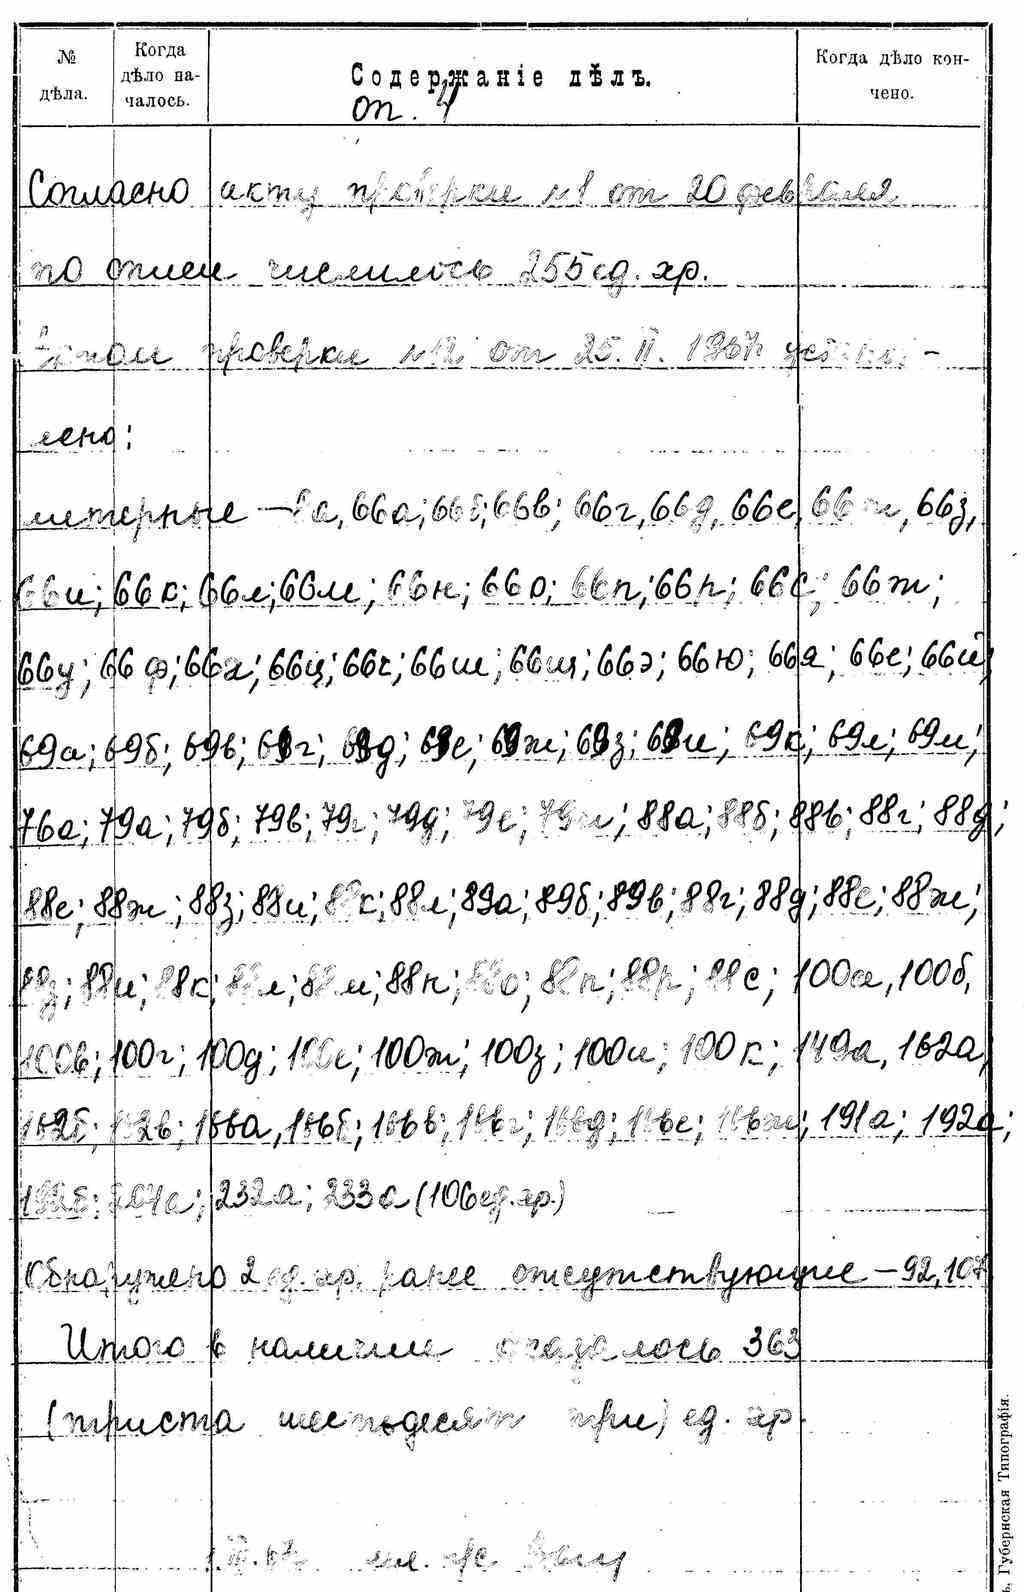 № дѣла.
Когда дѣло на-чалось.
Содержаніе дѣлъ.
Когда дѣло кон-чено.
оп. 4
Согласно акту проверки №1 от 20 февраля
по описи числилось 255 ед. хр.
проверки от 25. II. 1967г
лено:
литерные — а, 66а; 66б; 66в; 66г, 66д, 66е, 66ж, 66з,
66и; 66к; 66л; 66м; 66н; 66о; 66п; 66р; 66с; 66т;
66у; 66ф; 66х; 66ц; 66ч; 66ш; 66щ; 66э; 66ю; 66я; 66е; 66й;
69а; 69б; 69в; 69г; 69д; 69е; 69ж; 69з; 69и; 69к; 69л; 69м;
76а; 79а; 79б; 79в; 79г; 79д; 79е; 88а; 88б; 88в; 88г; 88д;
88е; 88ж; 88з; 88и; 88к; 88л; 89а; 89б; 89в; 88г; 88д; 88е; 88ж;
88з; 88и; 88к; 88л; 88м; 88н; 88о; 88п; 88р; 88с; 100а, 100б,
100в; 100г; 100д; 100е; 100ж; 100з; 100и; 100к; 149а, 162а,
162б; 162в; 166а, 166б; 166в; 166г; 166д; 166е; 166ж; 191а; 192а;
192б; 204а; 232а; 233а (106 ед. хр.)
Обнаружено 2 ед. хр. ранее отсутствующие — 92, 107
Итого в наличии оказалось 363
(триста шестьдесят три) ед. хр.
Губернская Типографія.